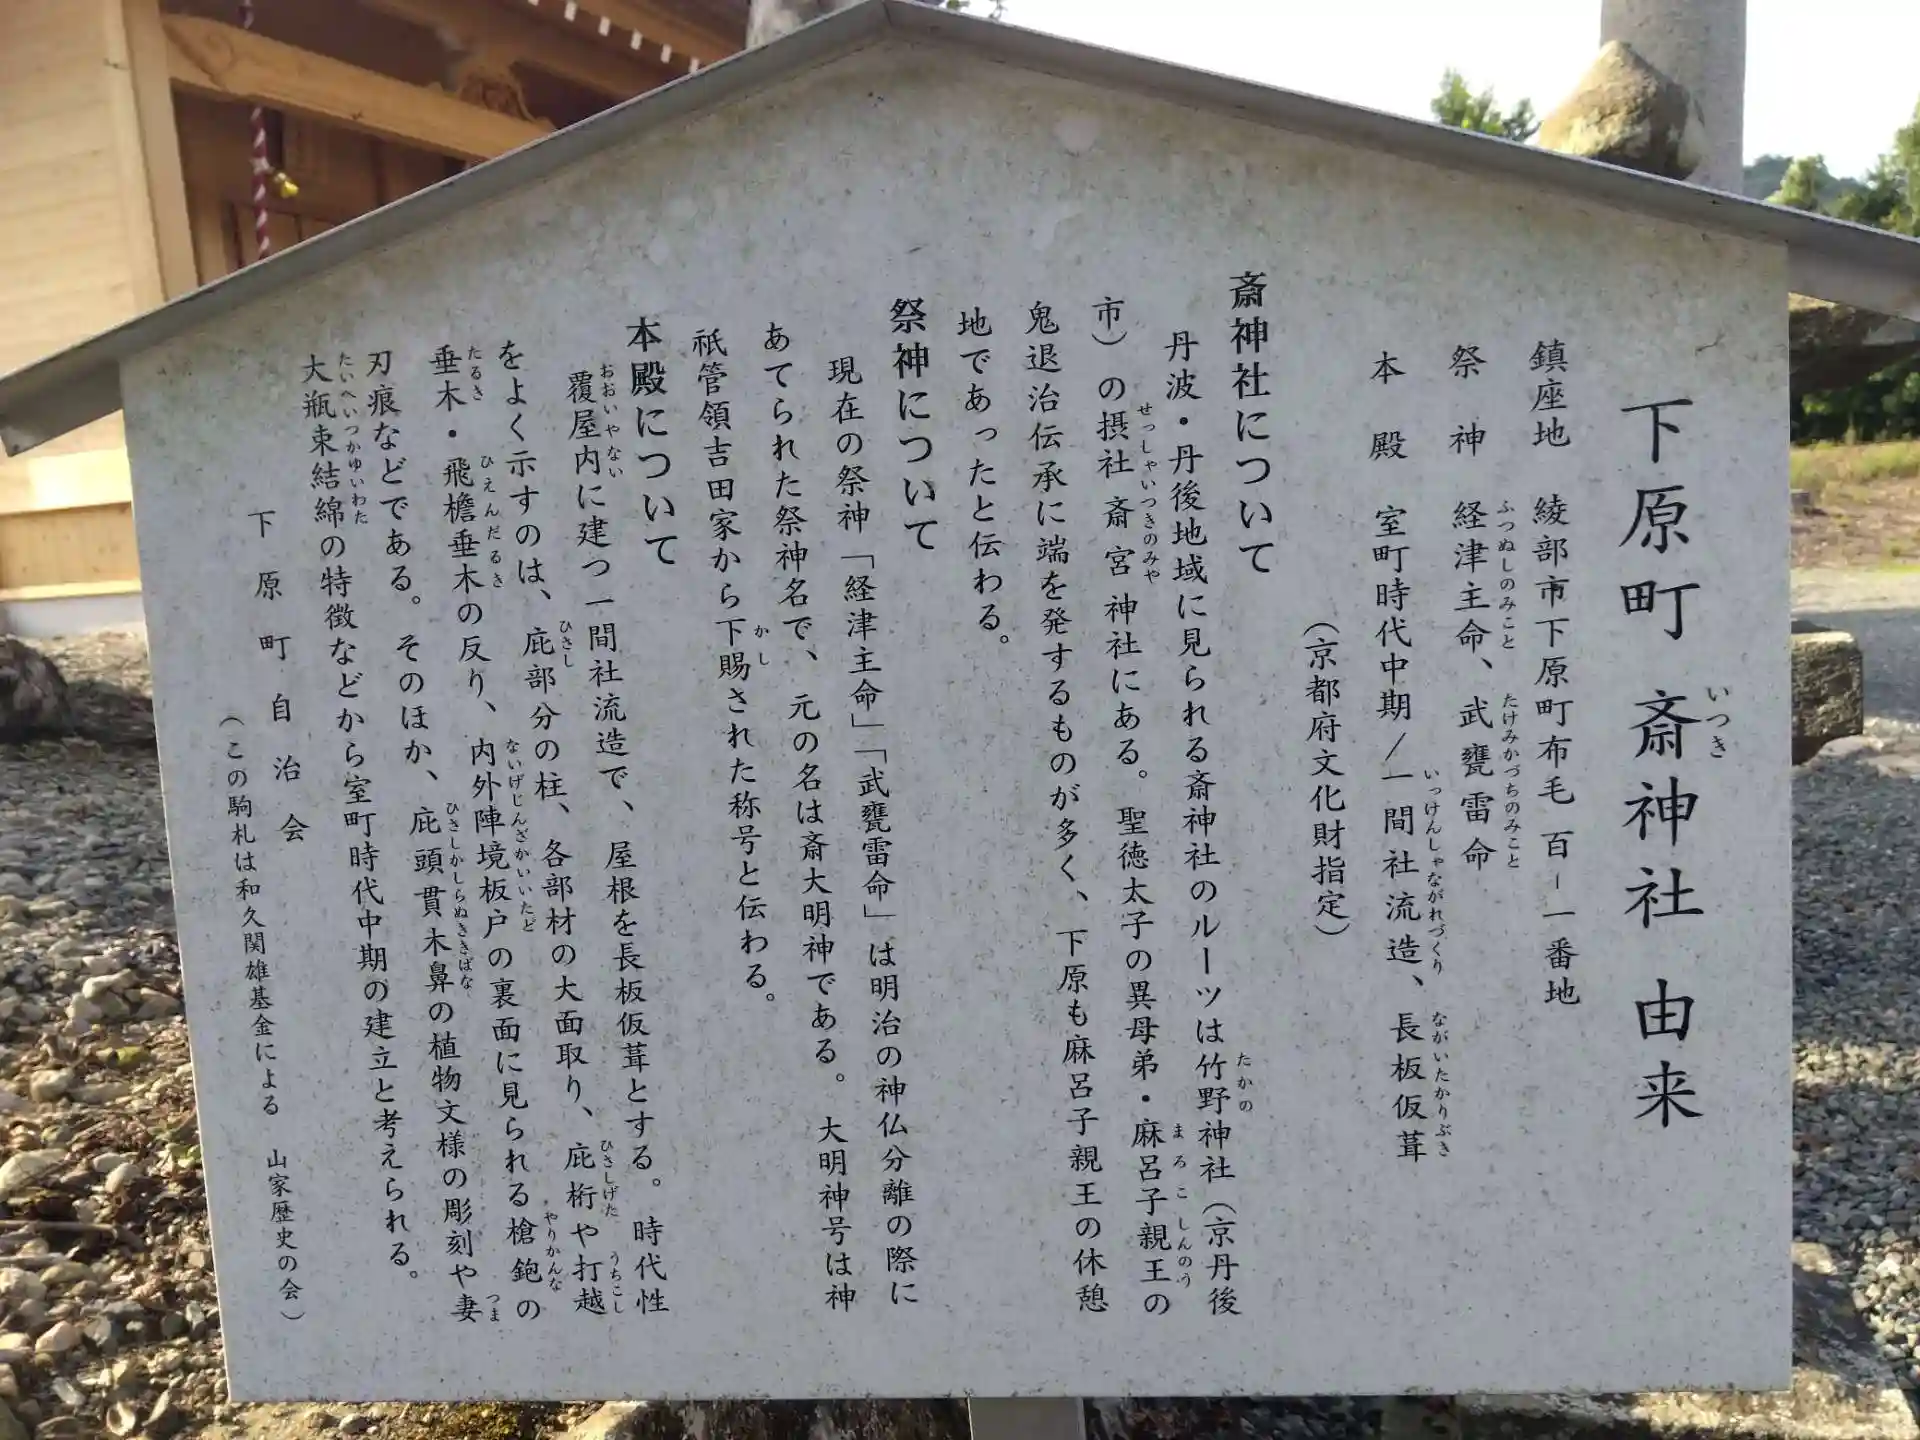 下原町 斎神社 由来
鎮座地 綾部市下原町布毛 百-一番地
祭神 経津主命、武甕雷命
本殿 室町時代中期/一間社流造、長板仮葺
（京都府文化財指定）
斎神社について
丹波・丹後地域に見られる斎神社のルーツは竹野神社（京丹後
市）の摂社 斎宮 神社にある。聖徳太子の異母弟・麻呂子親王の
鬼退治伝承に端を発するものが多く、下原も麻呂子親王の休憩
地であったと伝わる。
祭神について
現在の祭神「経津主命」「武甕雷命」は明治の神仏分離の際に
あてられた祭神名で、元の名は斎大明神である。大明神号は神
祇管領吉田家から下賜された称号と伝わる。
本殿について
覆屋内に建つ一間社流造で、屋根を長板仮葺とする。時代性
をよく示すのは、庇部分の柱、各部材の大面取り、庇桁や打越
垂木・飛檐垂木の反り、内外陣境板戸の裏面に見られる槍鉋の
刃痕などである。そのほか、庇頭貫木鼻の植物文様の彫刻や妻
大瓶束結綿の特徴などから室町時代中期の建立と考えられる。
下原町自治会
（この駒札は和久関雄基金による 山家歴史の会）